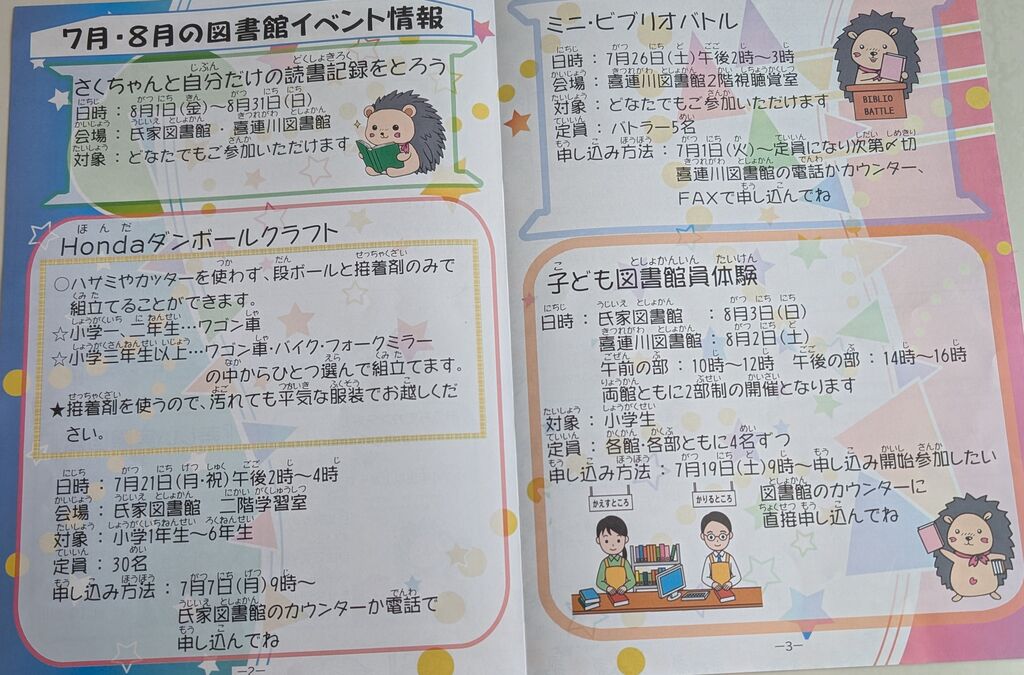 7月・8月の図書館イベント情報
さくちゃんと自分だけの読書記録をとろう
日時：8月1日(金)～8月31日(日)
会場：氏家図書館・喜連川図書館
対象：どなたでもご参加いただけます
Hondaダンボールクラフト
○ハサミやカッターを使わず、段ボールと接着剤のみで
組立てることができます。
☆小学一、二年生…ワゴン車
☆小学三年生以上…ワゴン車・バイク・フォークミラー
の中からひとつ選んで組立てます。
★接着剤を使うので、汚れても平気な服装でお越しくだ
さい。
日時：7月21日(月・祝)午後2時～4時
会場：氏家図書館 二階学習室
対象：小学1年生～6年生
定員：30名
申し込み方法：7月7日(月)9時～
氏家図書館のカウンターか電話で
申し込んでね
―2―
ミニ・ビブリオバトル
日時：7月26日(土)午後2時～3時
会場：喜連川図書館2階視聴覚室
対象：どなたでもご参加いただけます
定員：バトラー5名
申し込み方法：7月1日(火)～定員になり次第〆切
喜連川図書館の電話かカウンター、
FAXで申し込んでね
BIBLIO
BATTLE
子ども図書館員体験
日時：氏家図書館：8月3日(日)
喜連川図書館：8月2日(土)
午前の部：10時～12時 午後の部：14時～16時
両館ともに2部制の開催となります
対象：小学生
定員：各館・各部ともに4名ずつ
申し込み方法：7月19日(土)9時～申し込み開始参加したい
図書館のカウンターに
直接申し込んでね
かえすところ
かりるところ
―3―